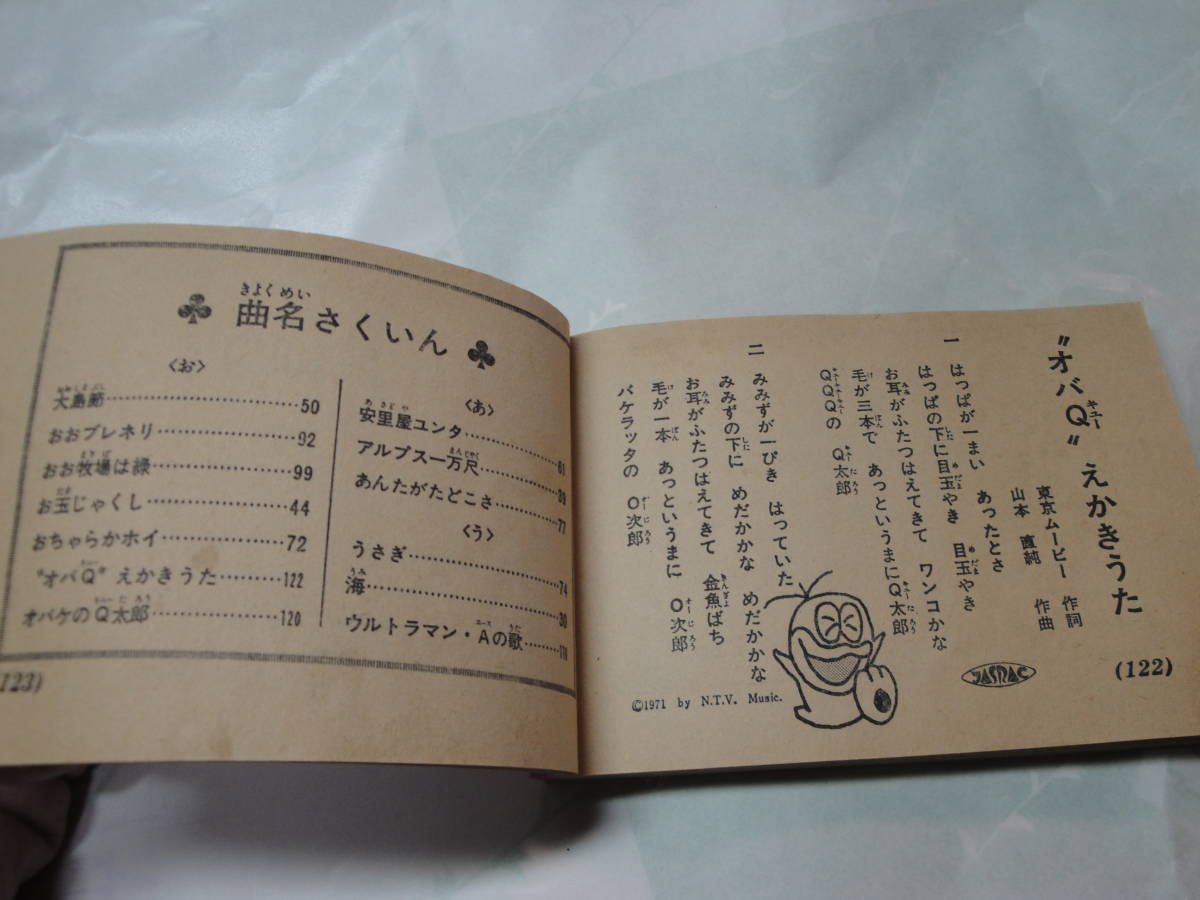 (122)
〝オバQ〟えかきうた
東京ムービー 作詞
山本 直純 作曲
一 はっぱが一まい あったとさ
はっぱの下に目玉やき 目玉やき
お耳がふたつはえてきて ワンコかな
毛が三本で あっというまにQ太郎
QQQの Q太郎
二 みみずが一ぴき はっていた
みみずの下に めだかかな めだかかな
お耳がふたつはえてきて 金魚ばち
毛が一本 あっというまに O次郎
バケラッタの O次郎
JASRAC
©1971 by N.T.V. Music.
♣ 曲名さくいん ♣
〈あ〉
安里屋ユンタ……61
アルプス一万尺……
あんたがたどこさ……77
〈う〉
うさぎ……74
海……
ウルトラマン・Aの歌……
〈お〉
大島節……50
おおブレネリ……92
おお牧場は緑……99
お玉じゃくし……44
おちゃらかホイ……72
〝オバQ〟えかきうた……122
オバケのQ太郎……120
123)